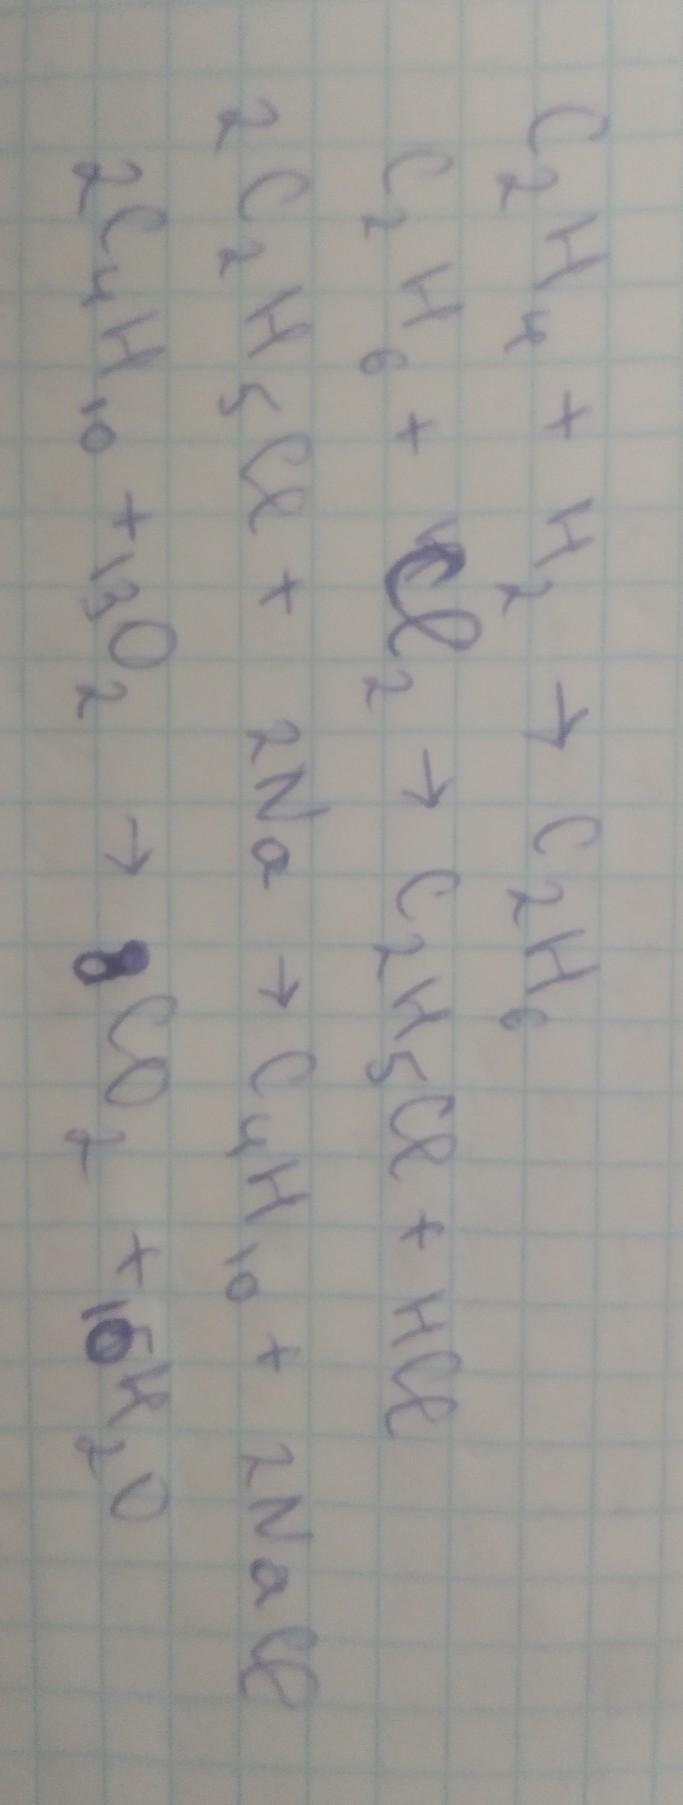 C₂H₄ + H₂ → C₂H₆
C₂H₆ + Cl₂ → C₂H₅Cl + HCl
2C₂H₅Cl + 2Na → C₄H₁₀ + 2NaCl
2C₄H₁₀ + 13O₂ → 8CO₂ + 10H₂O